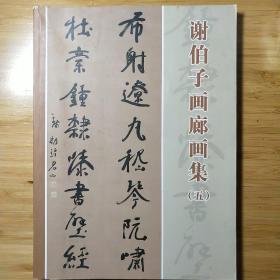 谢伯子画廊画集
（五）
布射遼丸嵇琴阮嘯
杜稾鍾隸漆書壁經